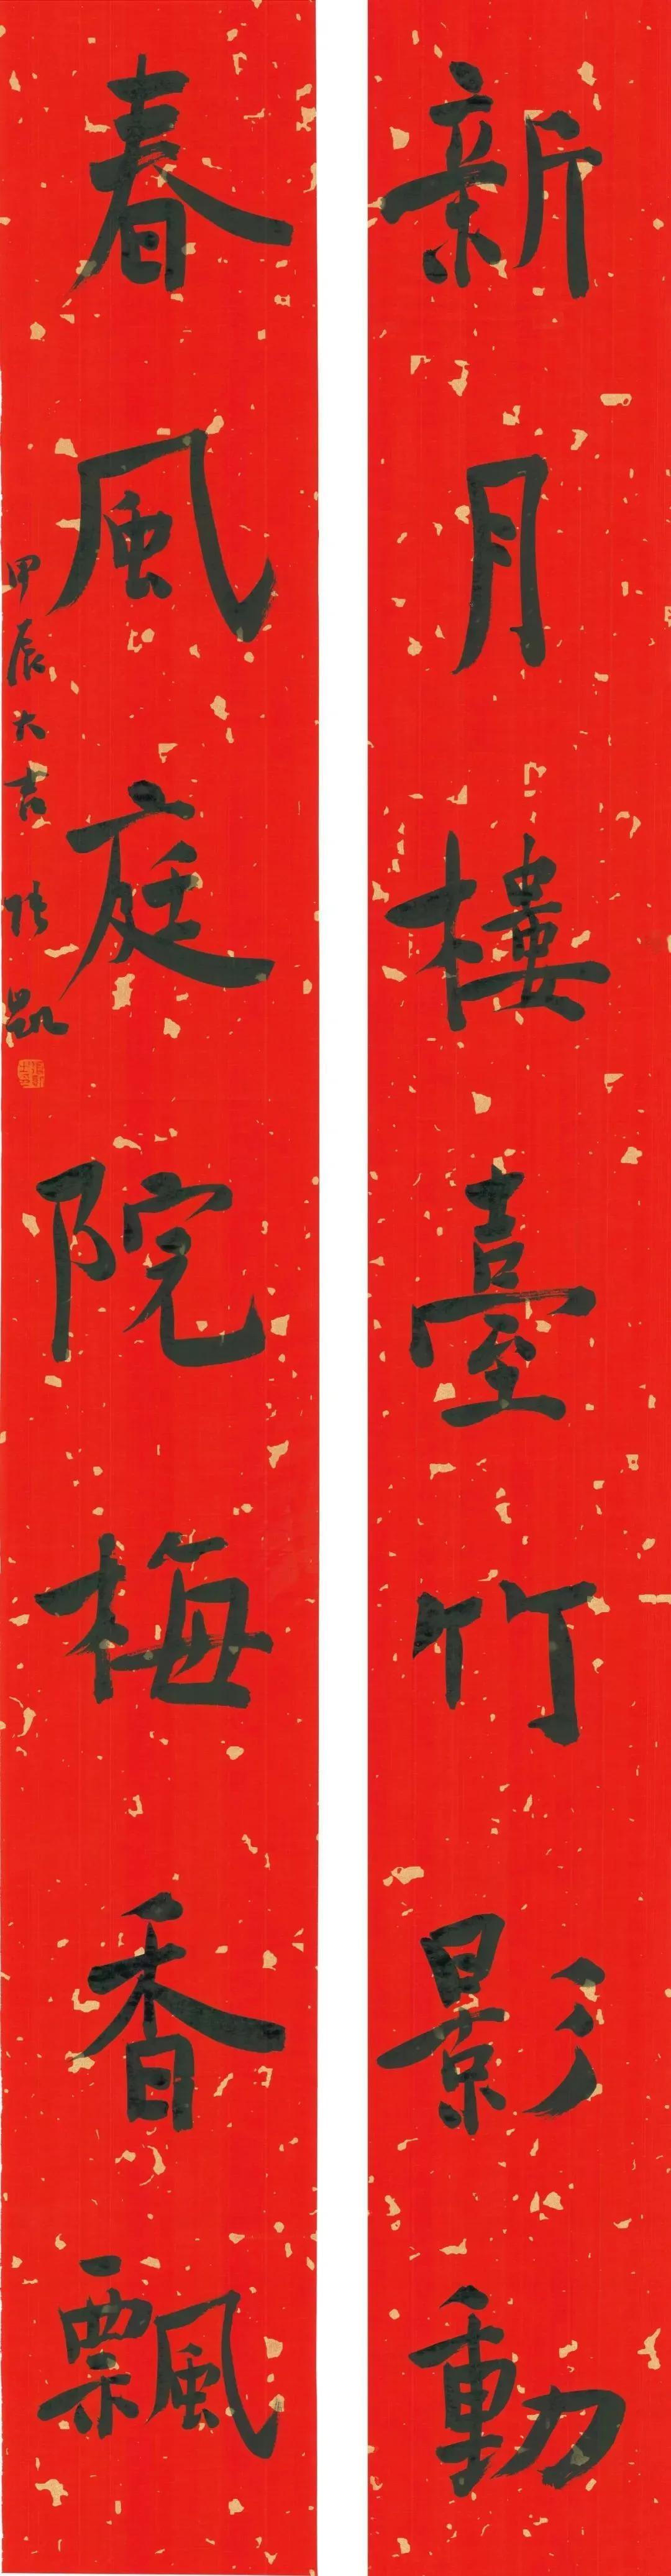 新月樓臺竹影動
春風庭院梅香飄
甲辰大吉 張凱